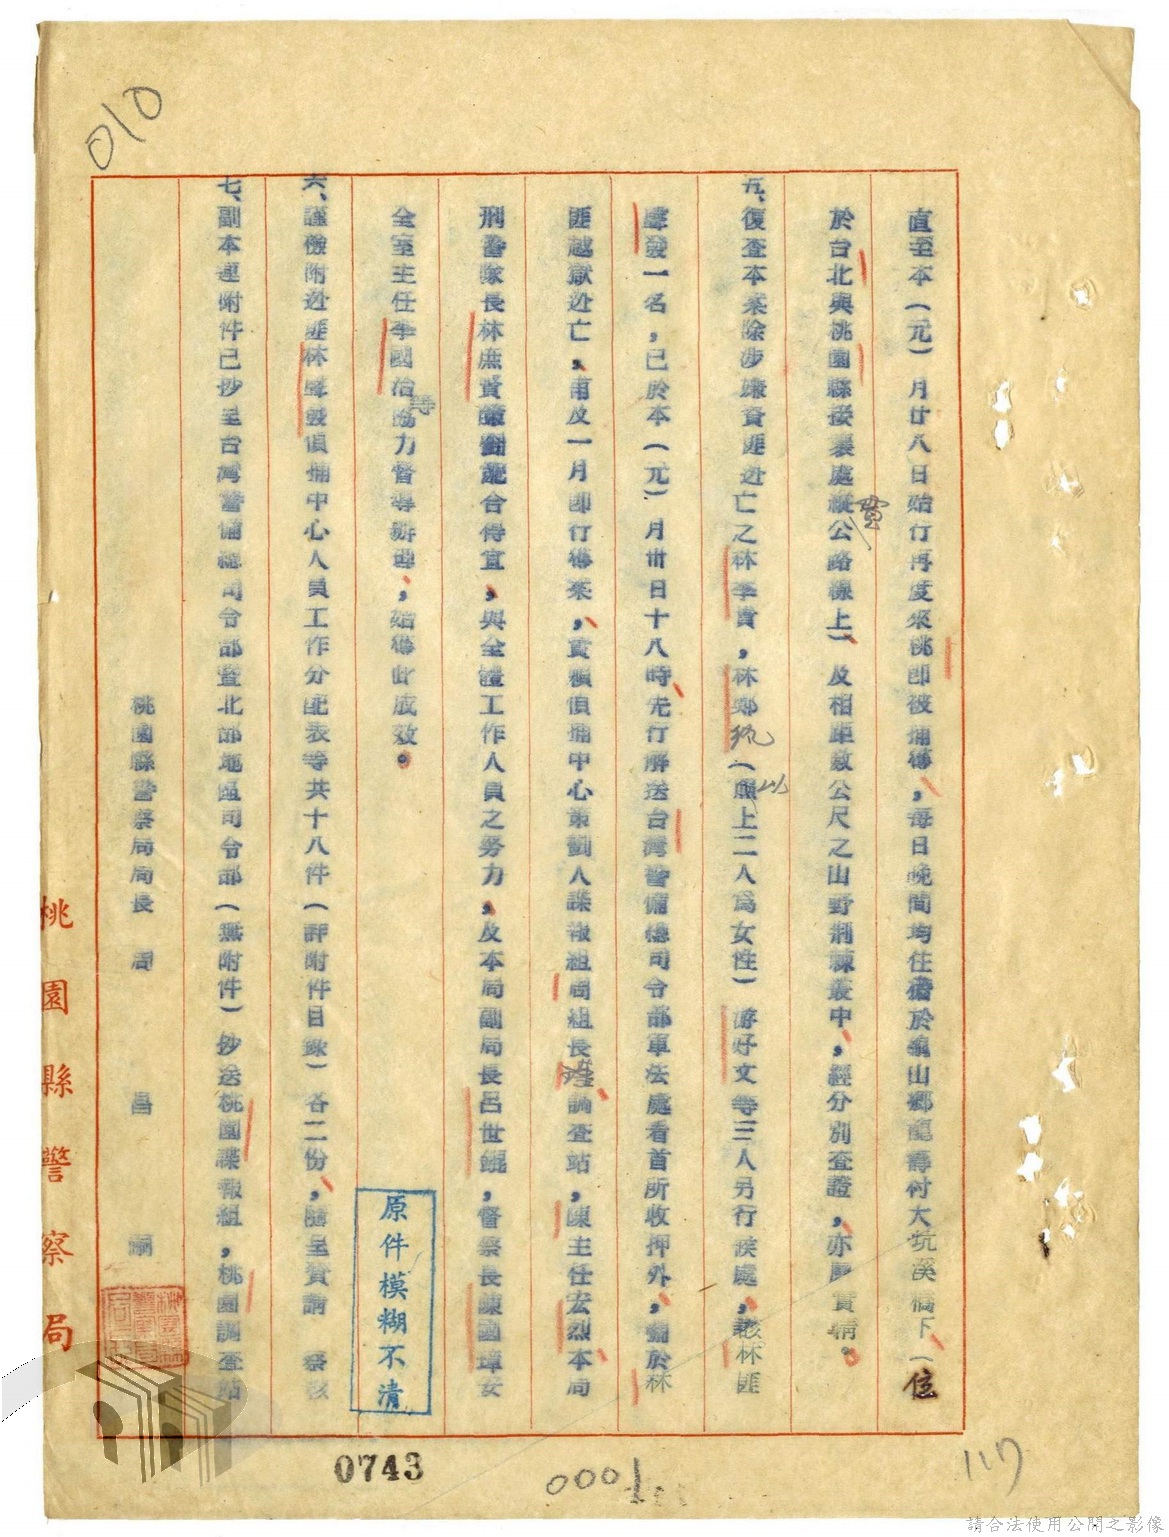 010
直至本（元）月廿八日始行再度來桃即被捕獲，每日晚間均住宿於龜山鄉龍壽村大坑溪橋下（位
於台北與桃園縣接壤處縱貫公路線上）及相距數公尺之山野荊棘叢中，經分別查證，亦屬實情。
五、復查本案除涉嫌資匪逃亡之林李貴，林鄭　（以上二人為女性）游好文等三人另行簽處，該林匪
肇發一名，已於本（元）月卅日十八時先行解送台灣警備總司令部軍法處看守所收押外，竊於林
匪越獄逃亡，甫及一月即行獲案，實賴偵捕中心策劃人諜報組周組長　調查站，陳主任宏烈本局
刑警隊長林庶　　　配合得宜，與全體工作人員之努力，及本局副局長呂世錕，督察長陳國璋安
全室主任李國治等協力督導辦理，始獲此成效。
六、謹檢附逃匪林肇發偵捕中心人員工作分配表等共十八件（詳附件目錄）各二份，隨呈賚請　察核
七、副本連附件已抄呈台灣警備總司令部暨北部地區司令部（無附件）抄送桃園諜報組，桃園調查站
桃園縣警察局局長　周　昌
桃園縣警察局
原件模糊不清
0743
0001
117
請合法使用公開之影像